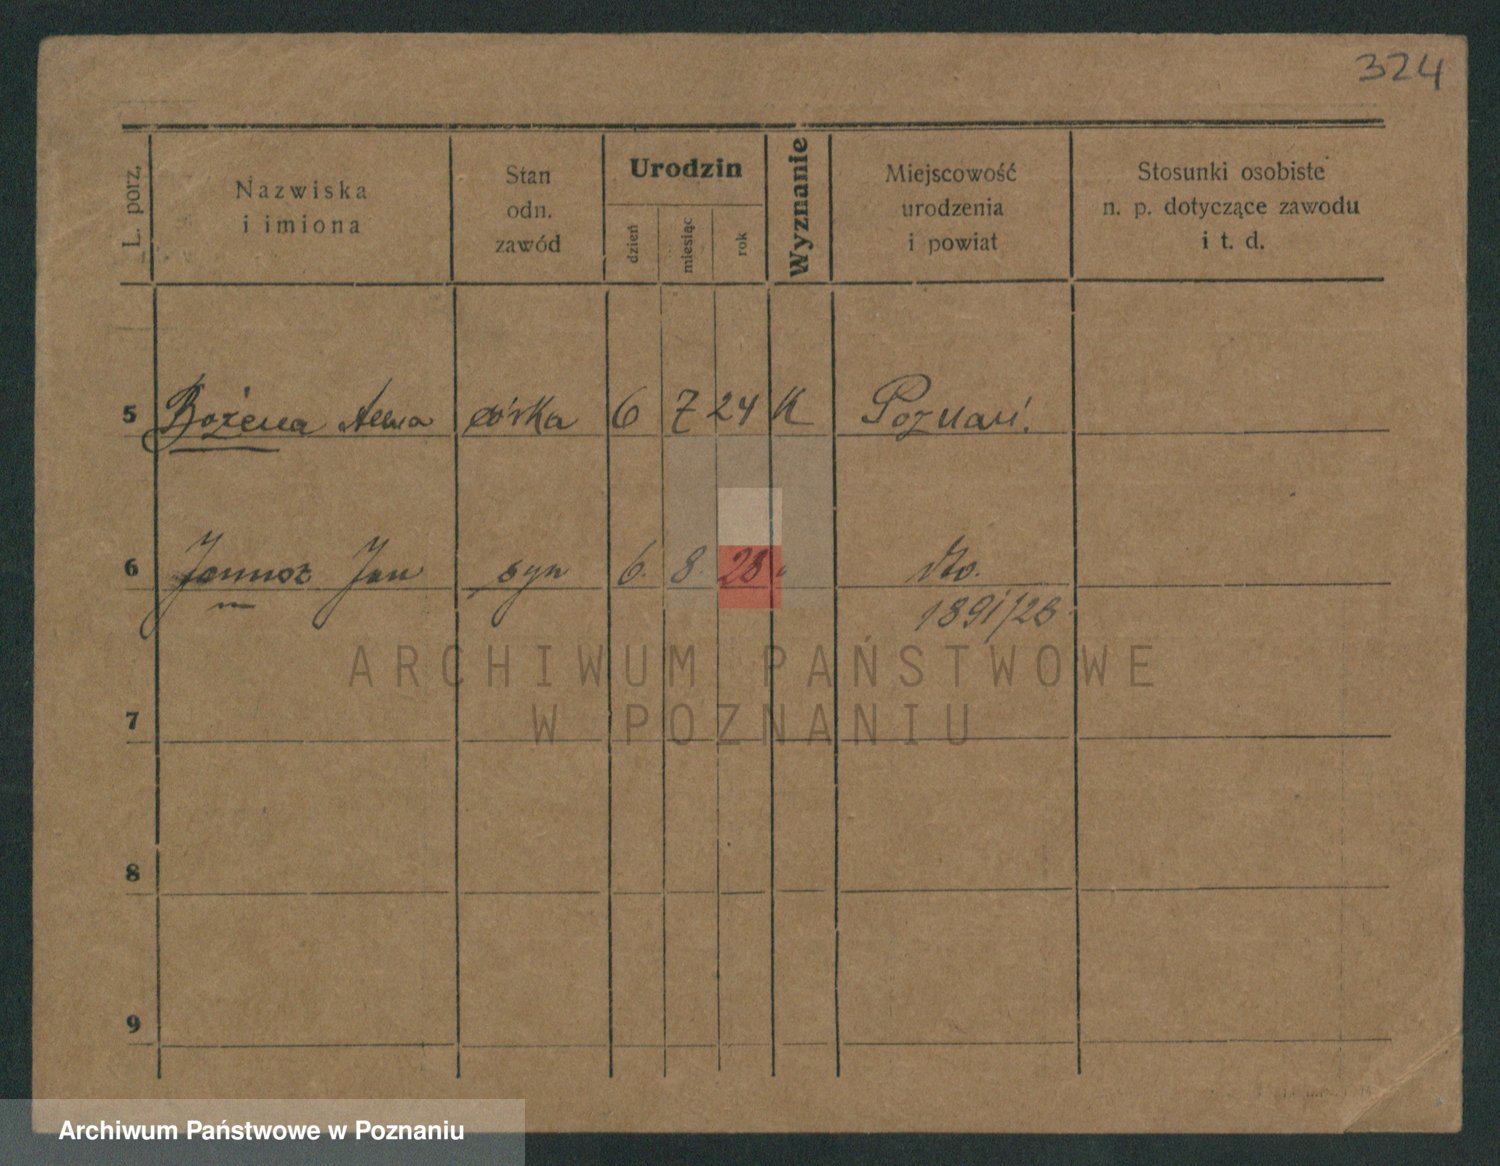 324
L. porz.
Nazwiska
i imiona
Stan
odn.
zawód
Urodzin
dzień
miesiąc
rok
Wyznanie
Miejscowość
urodzenia
i powiat
Stosunki osobiste
n. p. dotyczące zawodu
i t. d.
5 Bożena Anna córka 6 7 24 K Poznań.
6 Janusz Jan syn 6. 8. 28 " dto.
1891/28
7
8
9
ARCHIWUM PAŃSTWOWE
W POZNANIU
Archiwum Państwowe w Poznaniu